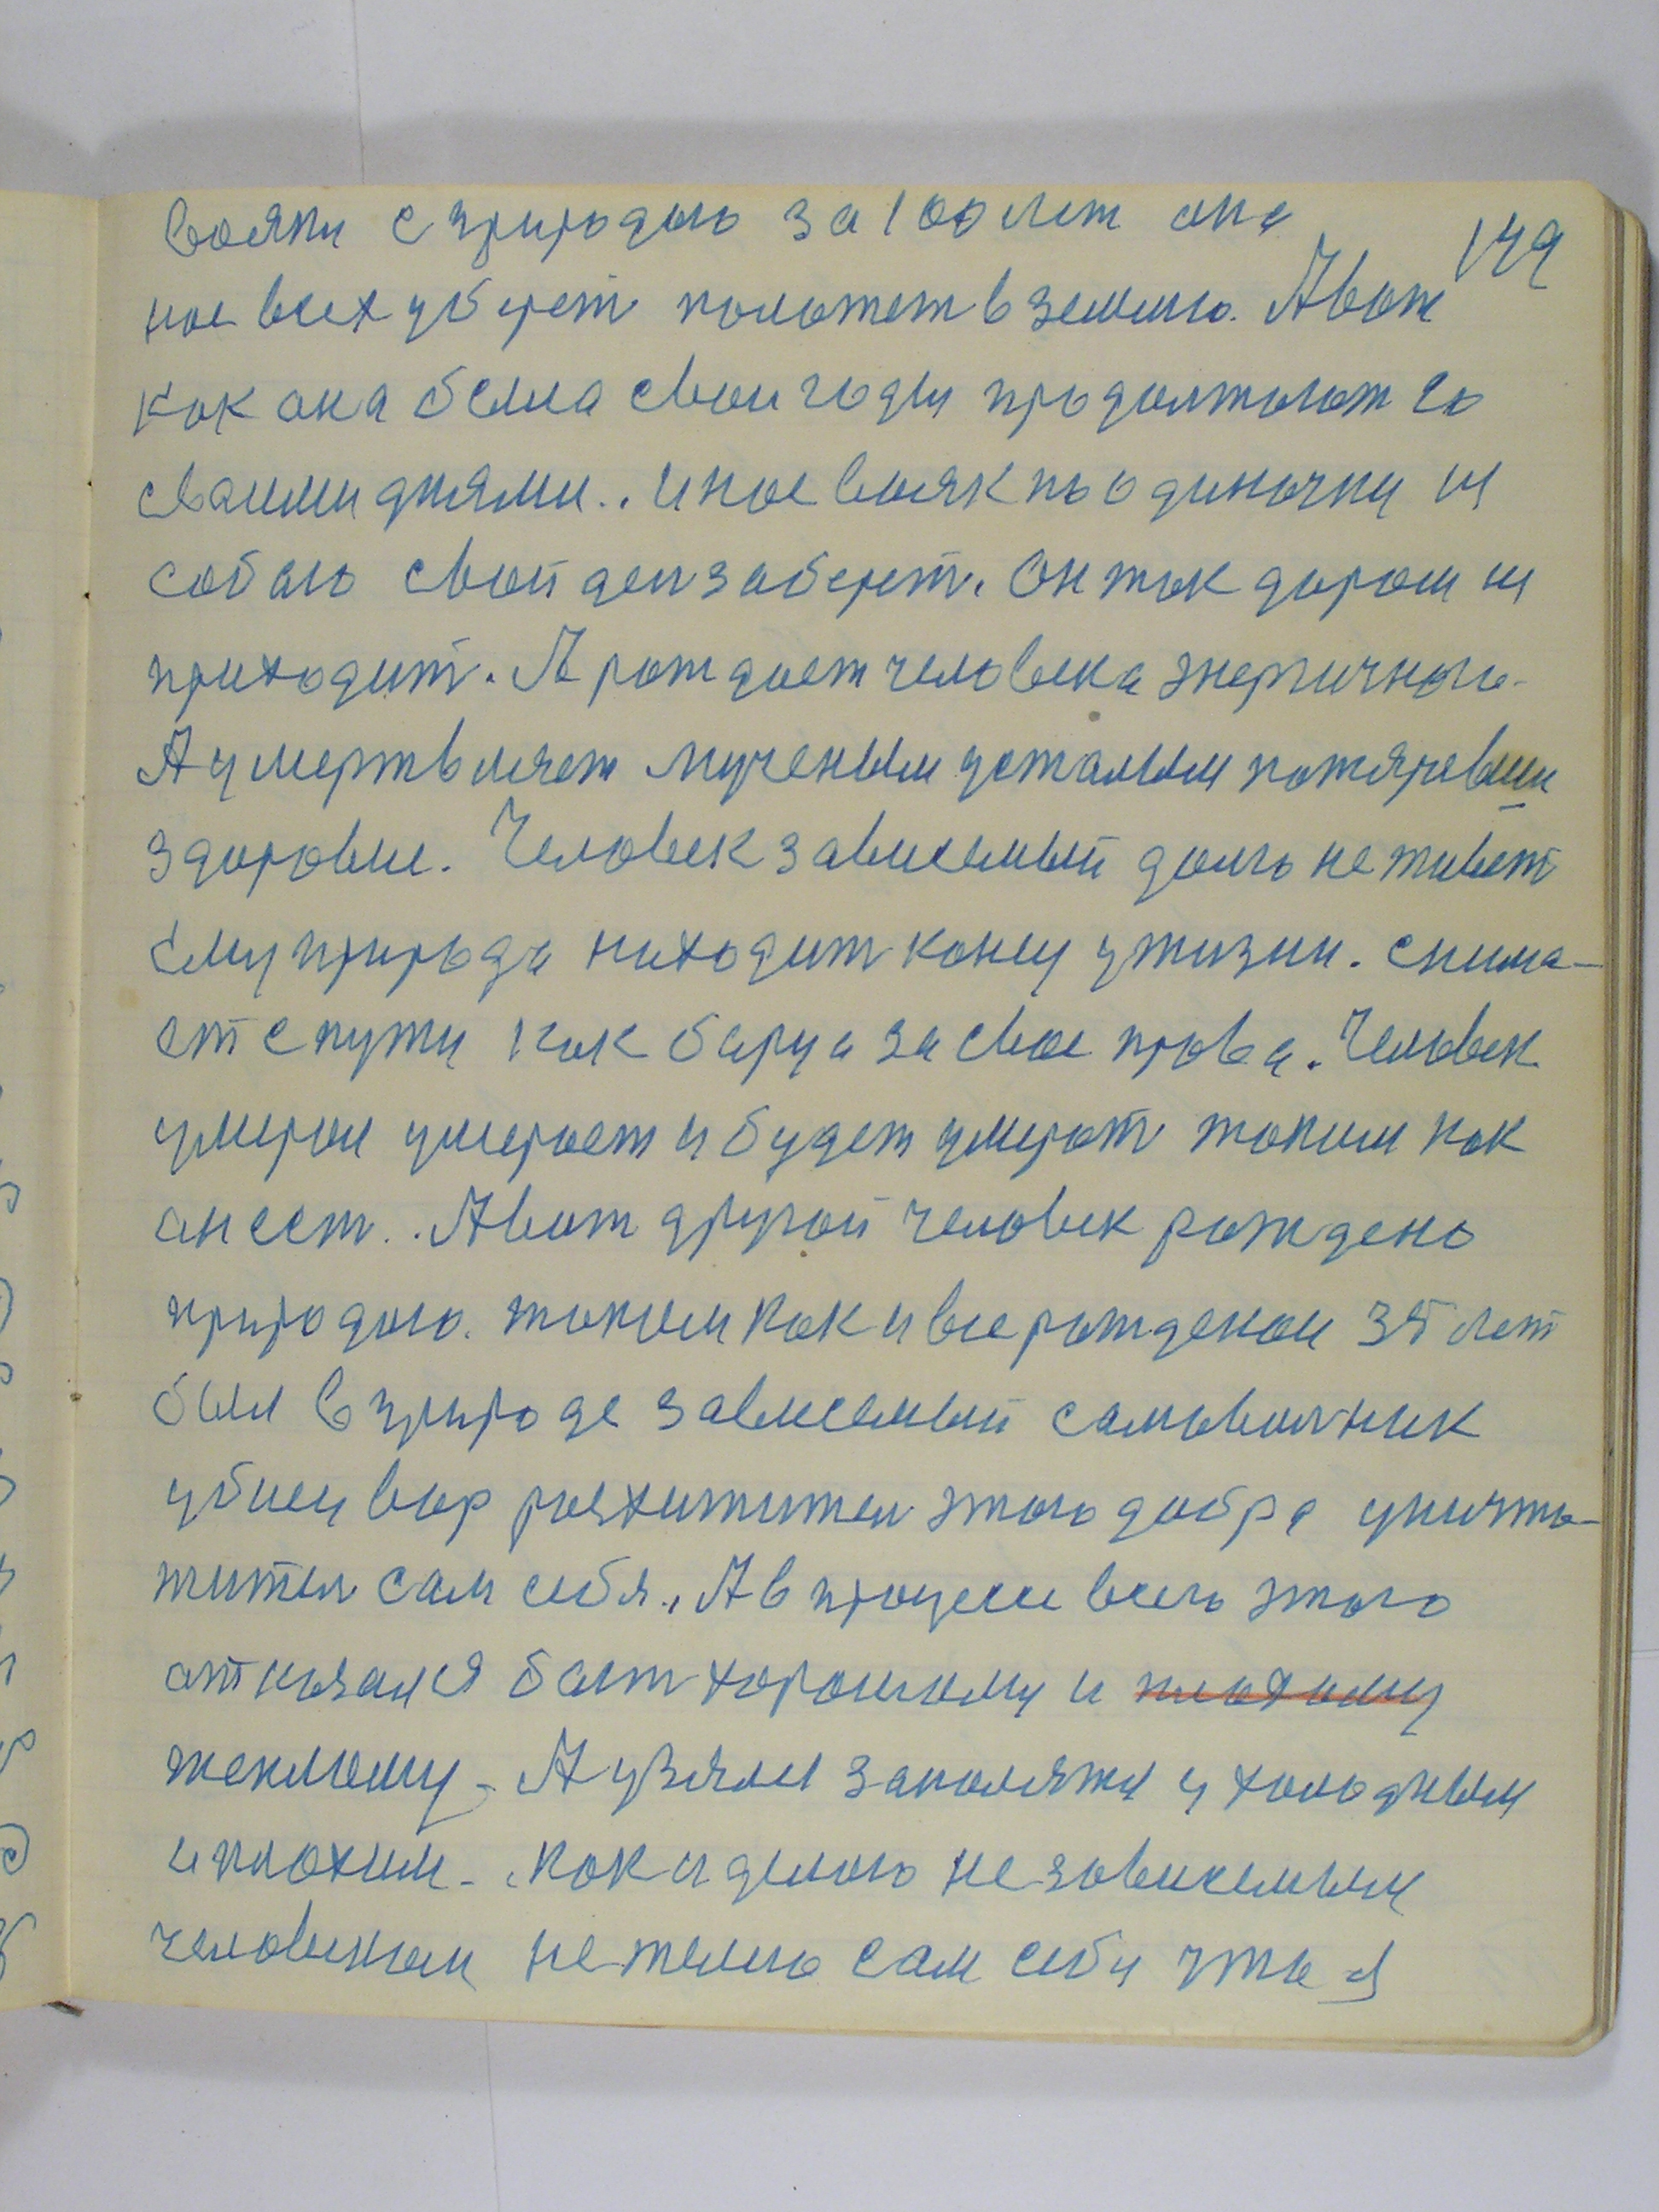 вояки с природою за 100 лет она
149
нас всех уберет положет в землю. А вот
как она была свои годы продолжают со
своими днями.. и нас всяк по одиночки из
собою свой ден заберет. Он так даром не
приходит. А рождает человека энергичного-
А умертвляет мученым усталым потярявши
здоровие. Человек зависемый долго не живет
ему природа находит конец у жизни. снима-
ет с пути как борца за свое права. Человек
умирал умерает и будет умерат таким как
он ест.. А вот другой человек рождено
природою. таким как и все рожденои 35 лет
был в природе зависемый самоволник
убиец вор расхитител этого добра уничто-
жител сам себя., А в процесе всего этого
отказался быт хорошому и плохому
теплому- А узяли заполяжи у холодным
и плохим-. как и делаю независемым
человеком не желаю сам себя что я